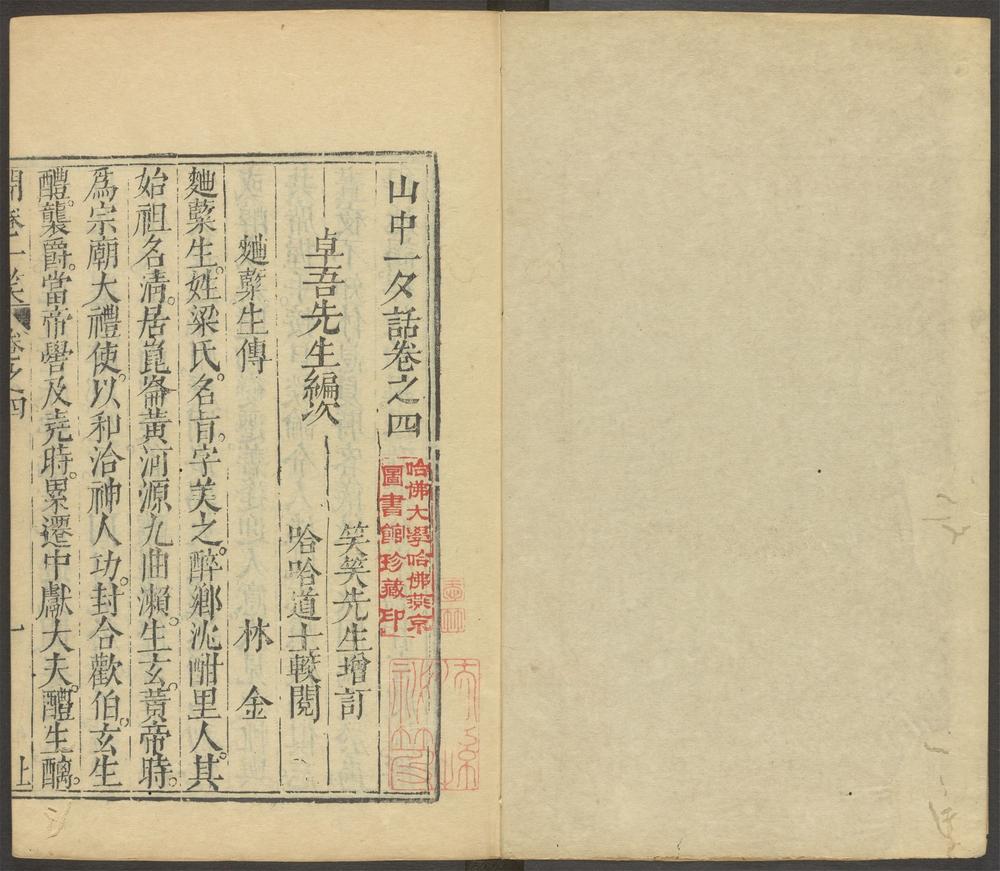 山中一夕話卷之四
卓吾先生編次
笑笑先生增訂
哈哈道士較閱
麯糵生傳
林金
麯糵生。姓梁氏。名肓。字美之。醉鄉沈酣里人。其
始祖名清。居崑崙黃河源九曲瀨。生玄。黃帝時。
爲宗廟大禮使。以和洽神人功。封合歡伯。玄生
醴。襲爵。當帝嚳及堯時。累遷中獻大夫。醴生醨。
開卷一笑
卷之四
一
上
哈佛大學哈佛燕京
圖書館珍藏印